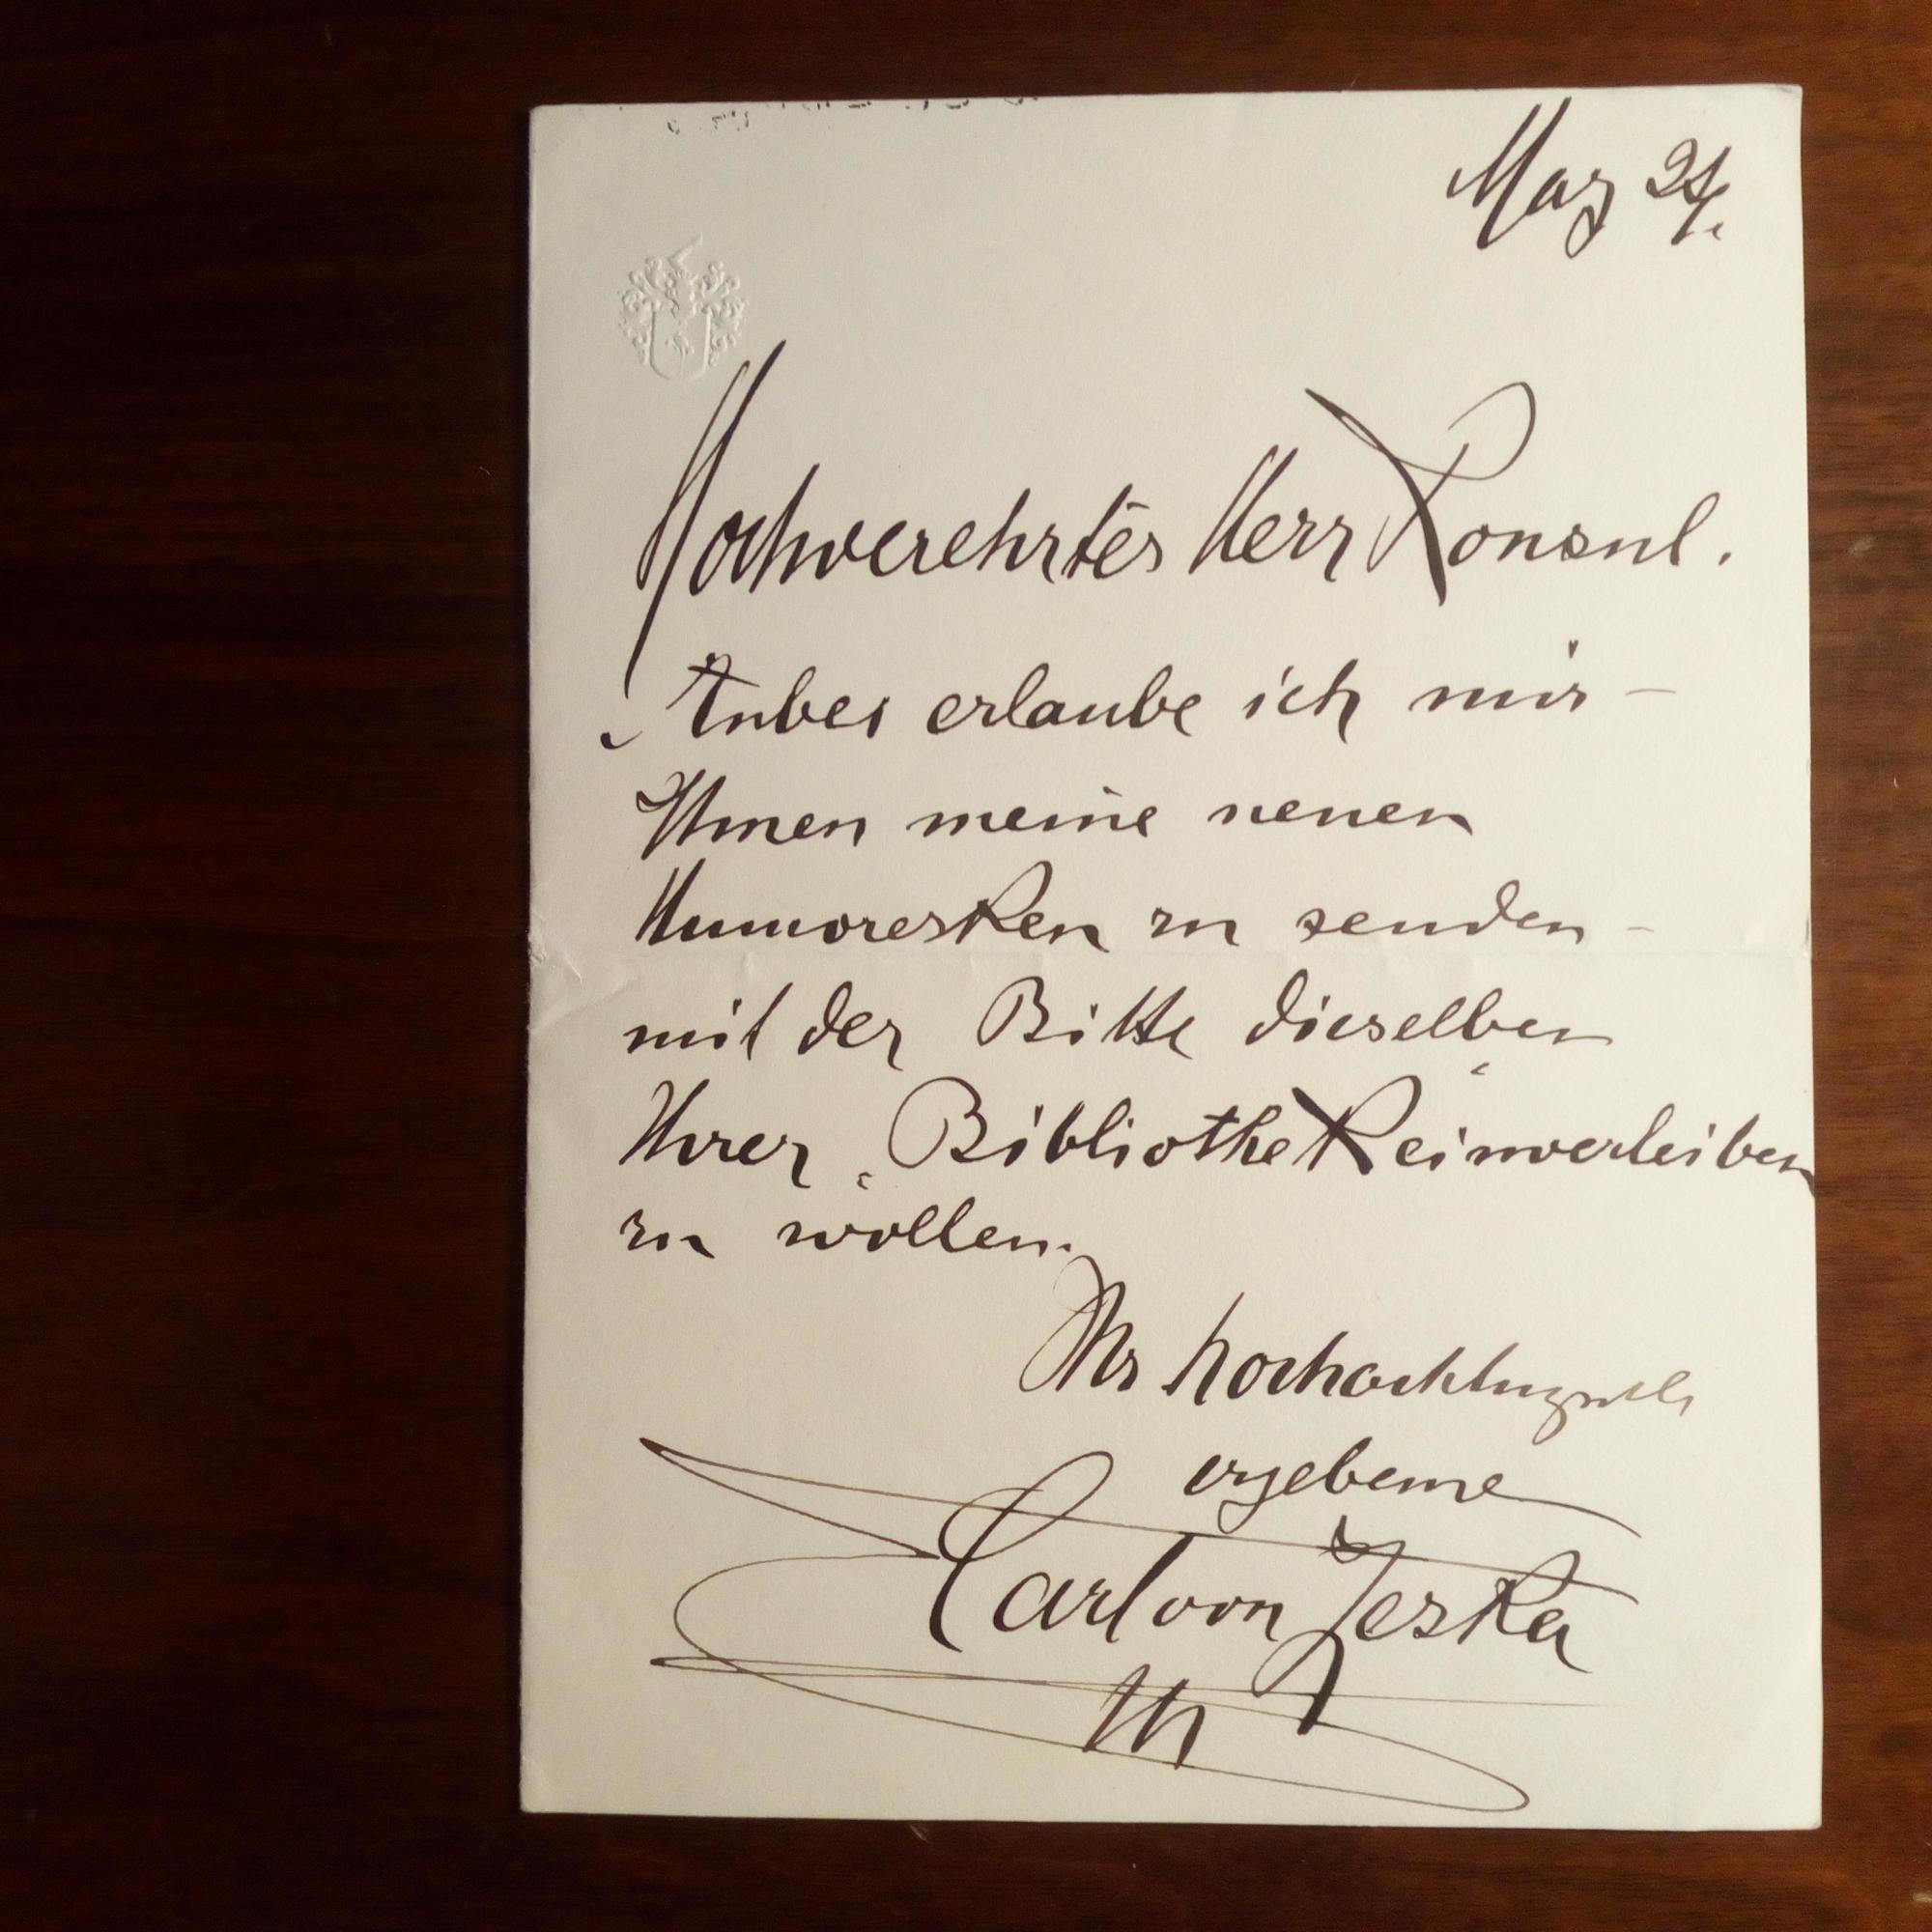 May 24.
Hochverehrter Herr Konsul.
Anbei erlaube ich mir –
Ihnen meine neuen
Humoresken zu senden –
mit der Bitte dieselben
Ihrer Bibliothek einverleiben
zu wollen.
Ihr hochachtungsvoll
ergebene
Carl von Jeska